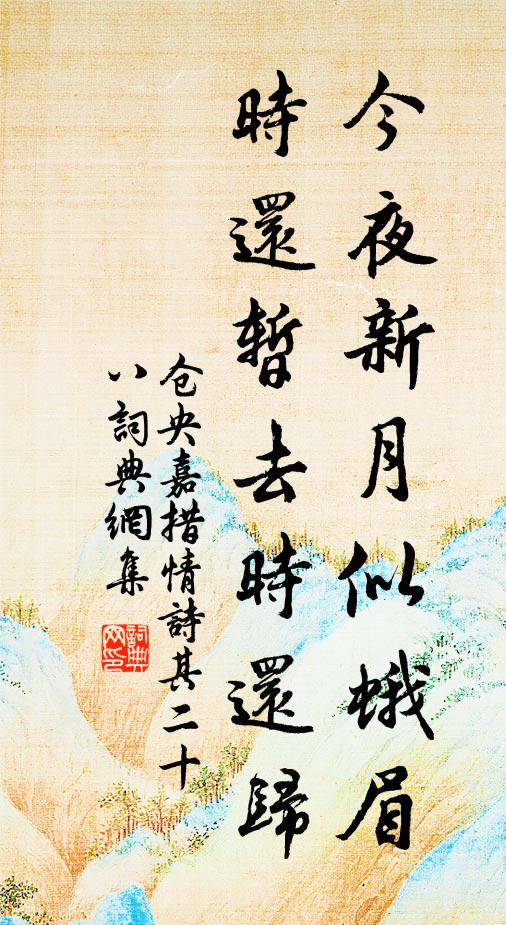 今夜新月似蛾眉
時還暫去時還歸
仓央嘉措情詩其二十
八詞典網集
詞典
网印